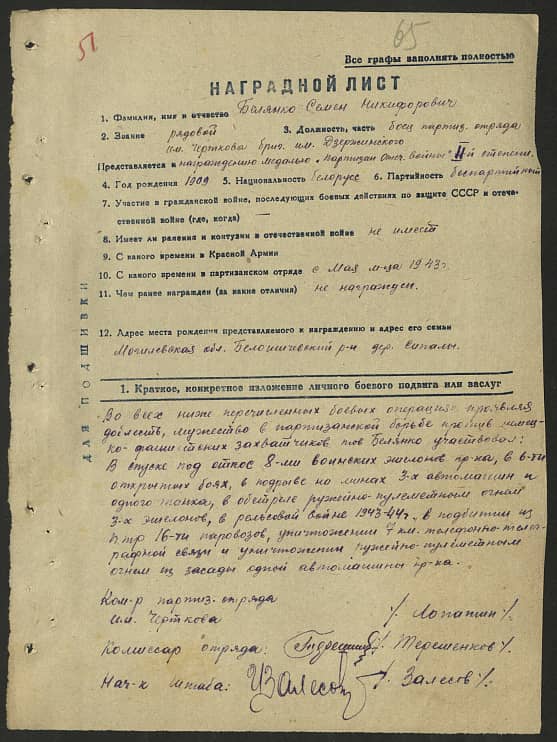 51
65
Все графы заполнять полностью
НАГРАДНОЙ ЛИСТ
1. Фамилия, имя и отчество Белянко Семен Никифорович
2. Звание рядовой 3. Должность, часть боец партиз. отряда
им. Черткова бриг. им. Дзержинского
Представляется к награждению медалью "Партизан Отеч. войны" II-й степени.
4. Год рождения 1909 5. Национальность белорусс 6. Партийность беспартийный
7. Участие в гражданской войне, последующих боевых действиях по защите СССР и отече-
ственной войне (где, когда) —
8. Имеет ли ранения и контузии в отечественной войне не имеет
9. С какого времени в Красной Армии
10. С какого времени в партизанском отряде с Мая м-ца 1943 г.
11. Чем ранее награжден (за какие отличия) не награжден.
12. Адрес места рождения представляемого к награждению и адрес его семьи
Могилевская обл. р-н дер.
ДЛЯ ПОДШИВКИ
1. Краткое, конкретное изложение личного боевого подвига или заслуг
Во всех ниже перечисленных боевых операциях проявляя
доблесть, мужество в партизанской борьбе против немец-
ко-фашистских захватчиков тов Белянко участвовал:
В спуске под откос 8-ми воинских эшелонов пр-ка, в 6-ти
открытых боях, в подрыве на минах 3-х автомашин и
одного танка, в обстреле ружейно-пулеметным огнем
3-х эшелонов, в рельсовой войне 1943-44 г., в подбитии из
ПТР 16-ти паровозов, уничтожении 7 км. телефонно-телег-
рафной связи и уничтожении ружейно-пулеметным
огнем из засады одной автомашины пр-ка.
Ком-р партиз. отряда
им. Черткова /. Лопатин /.
Комиссар отряда: /. Терешенков /.
Нач-к штаба: Залесов /. Залесов /.